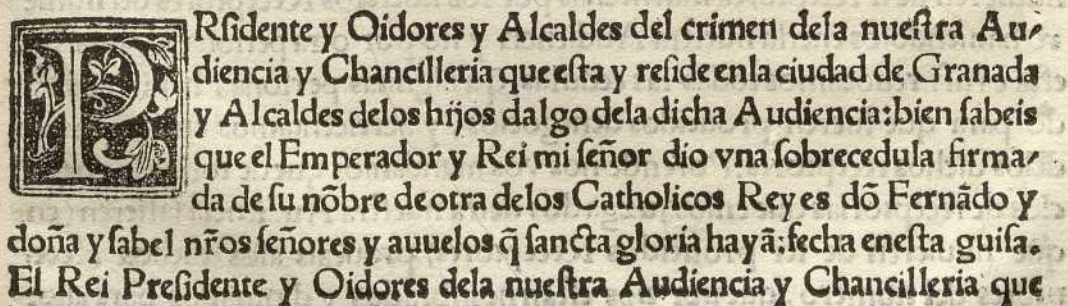 PRſidente y Oidores y Alcaldes del crimen dela nueſtra Au-
diencia y Chancilleria que eſta y reſide enla ciudad de Granada
y Alcaldes delos hijos dalgo dela dicha Audiencia: bien ſabeis
que el Emperador y Rei mi ſeñor dio vna ſobrecedula firma-
da de ſu nõbre de otra delos Catholicos Reyes dõ Fernãdo y
doña yſabel nr̃os ſeñores y auuelos q̃ ſancta gloria hayã: fecha eneſta guiſa.
El Rei Preſidente y Oidores dela nueſtra Audiencia y Chancilleria que